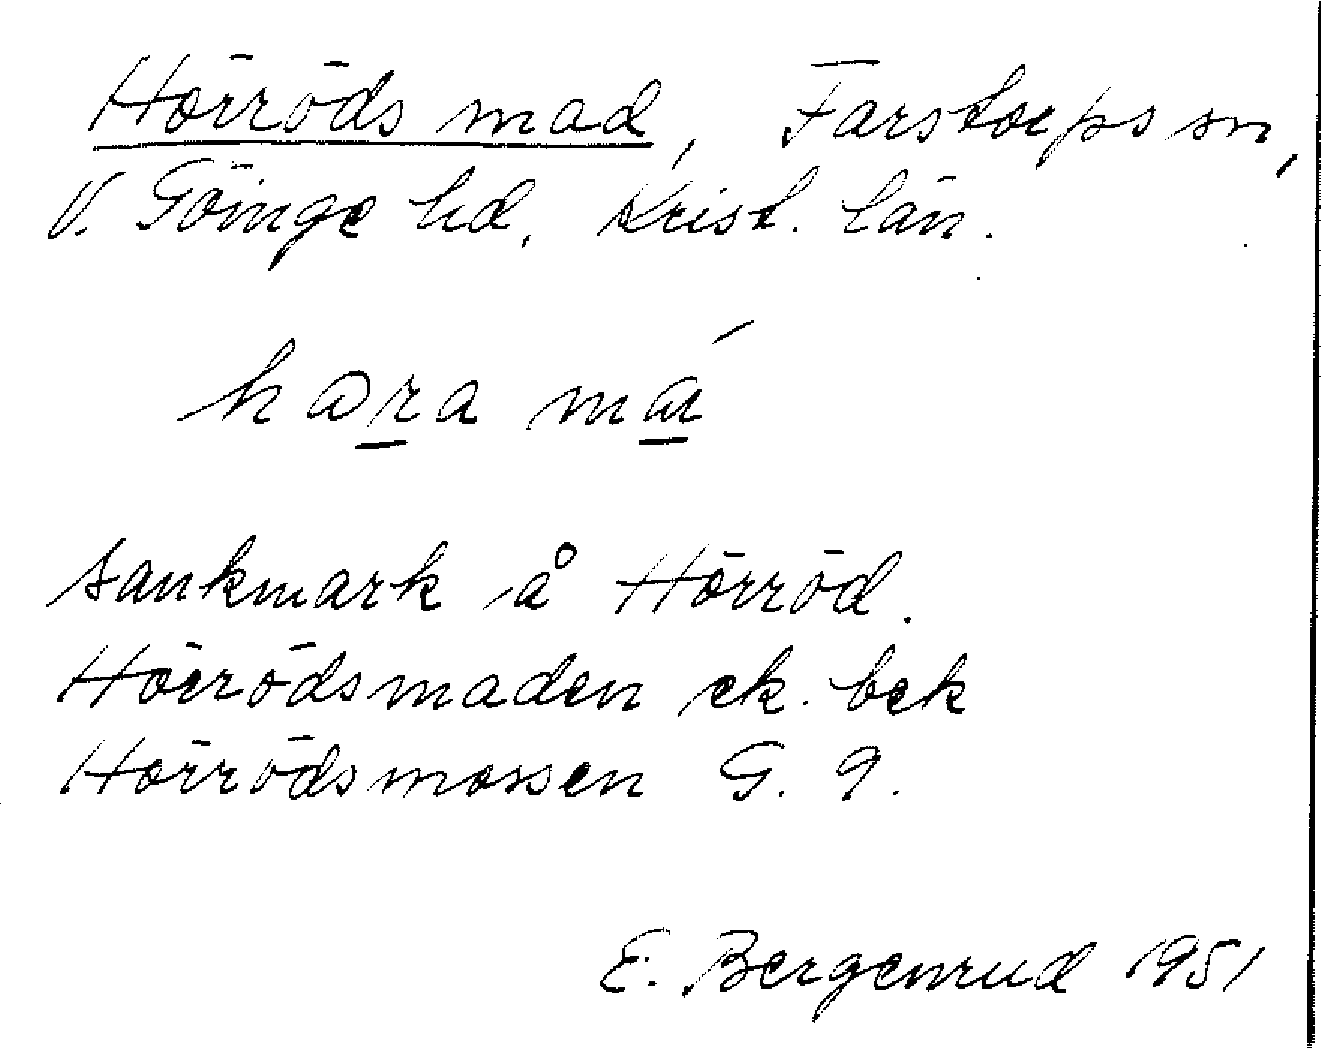 Hörröds mad, Farstorps sn,
V. Göinge hd, Krist. län.
sankmark å Hörröd.
Hörrödsmaden ek. bek
Hörrödsmossen G. 9.
E. Bergenrud 1951